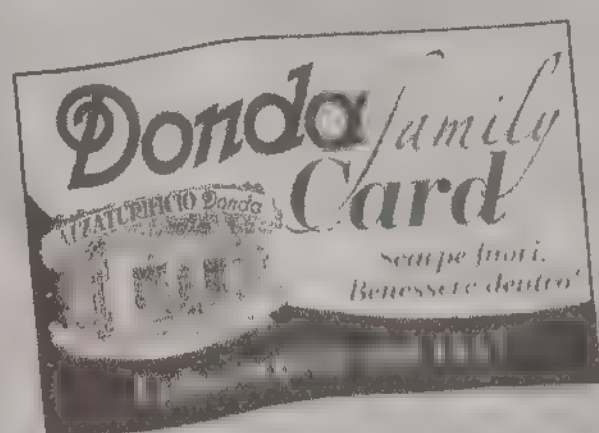 Donda family
Card
CALZATURIFICIO Donda
scarpe fuori.
Benessere dentro!